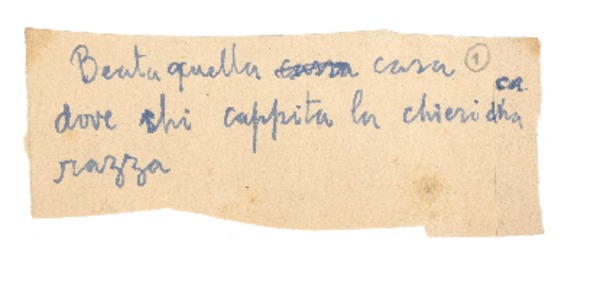 Beata quella casa casa 1
ca
dove chi cappita la chieri cha
razza